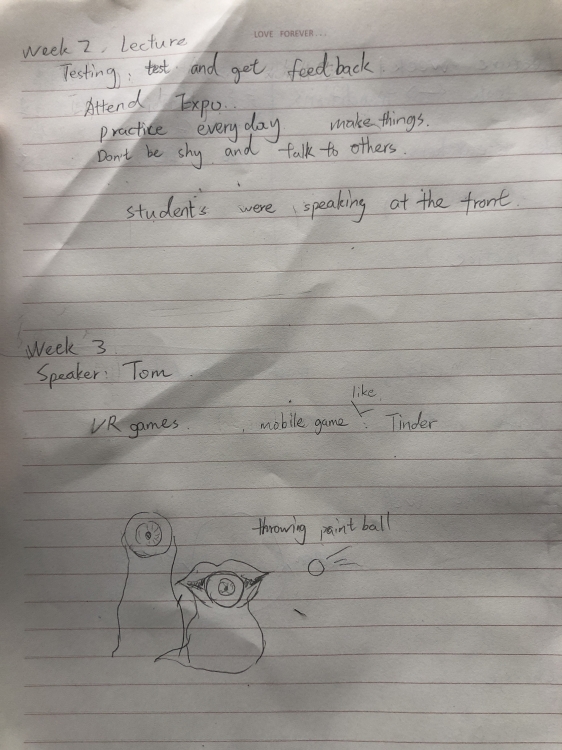 LOVE FOREVER...
Week 2. Lecture
Testing, test and get feedback.
Attend Expo..
practice everyday make things.
Don't be shy and talk to others.
student's were speaking at the front.
Week 3
Speaker: Tom
like
VR games. mobile game : Tinder
throwing paint ball